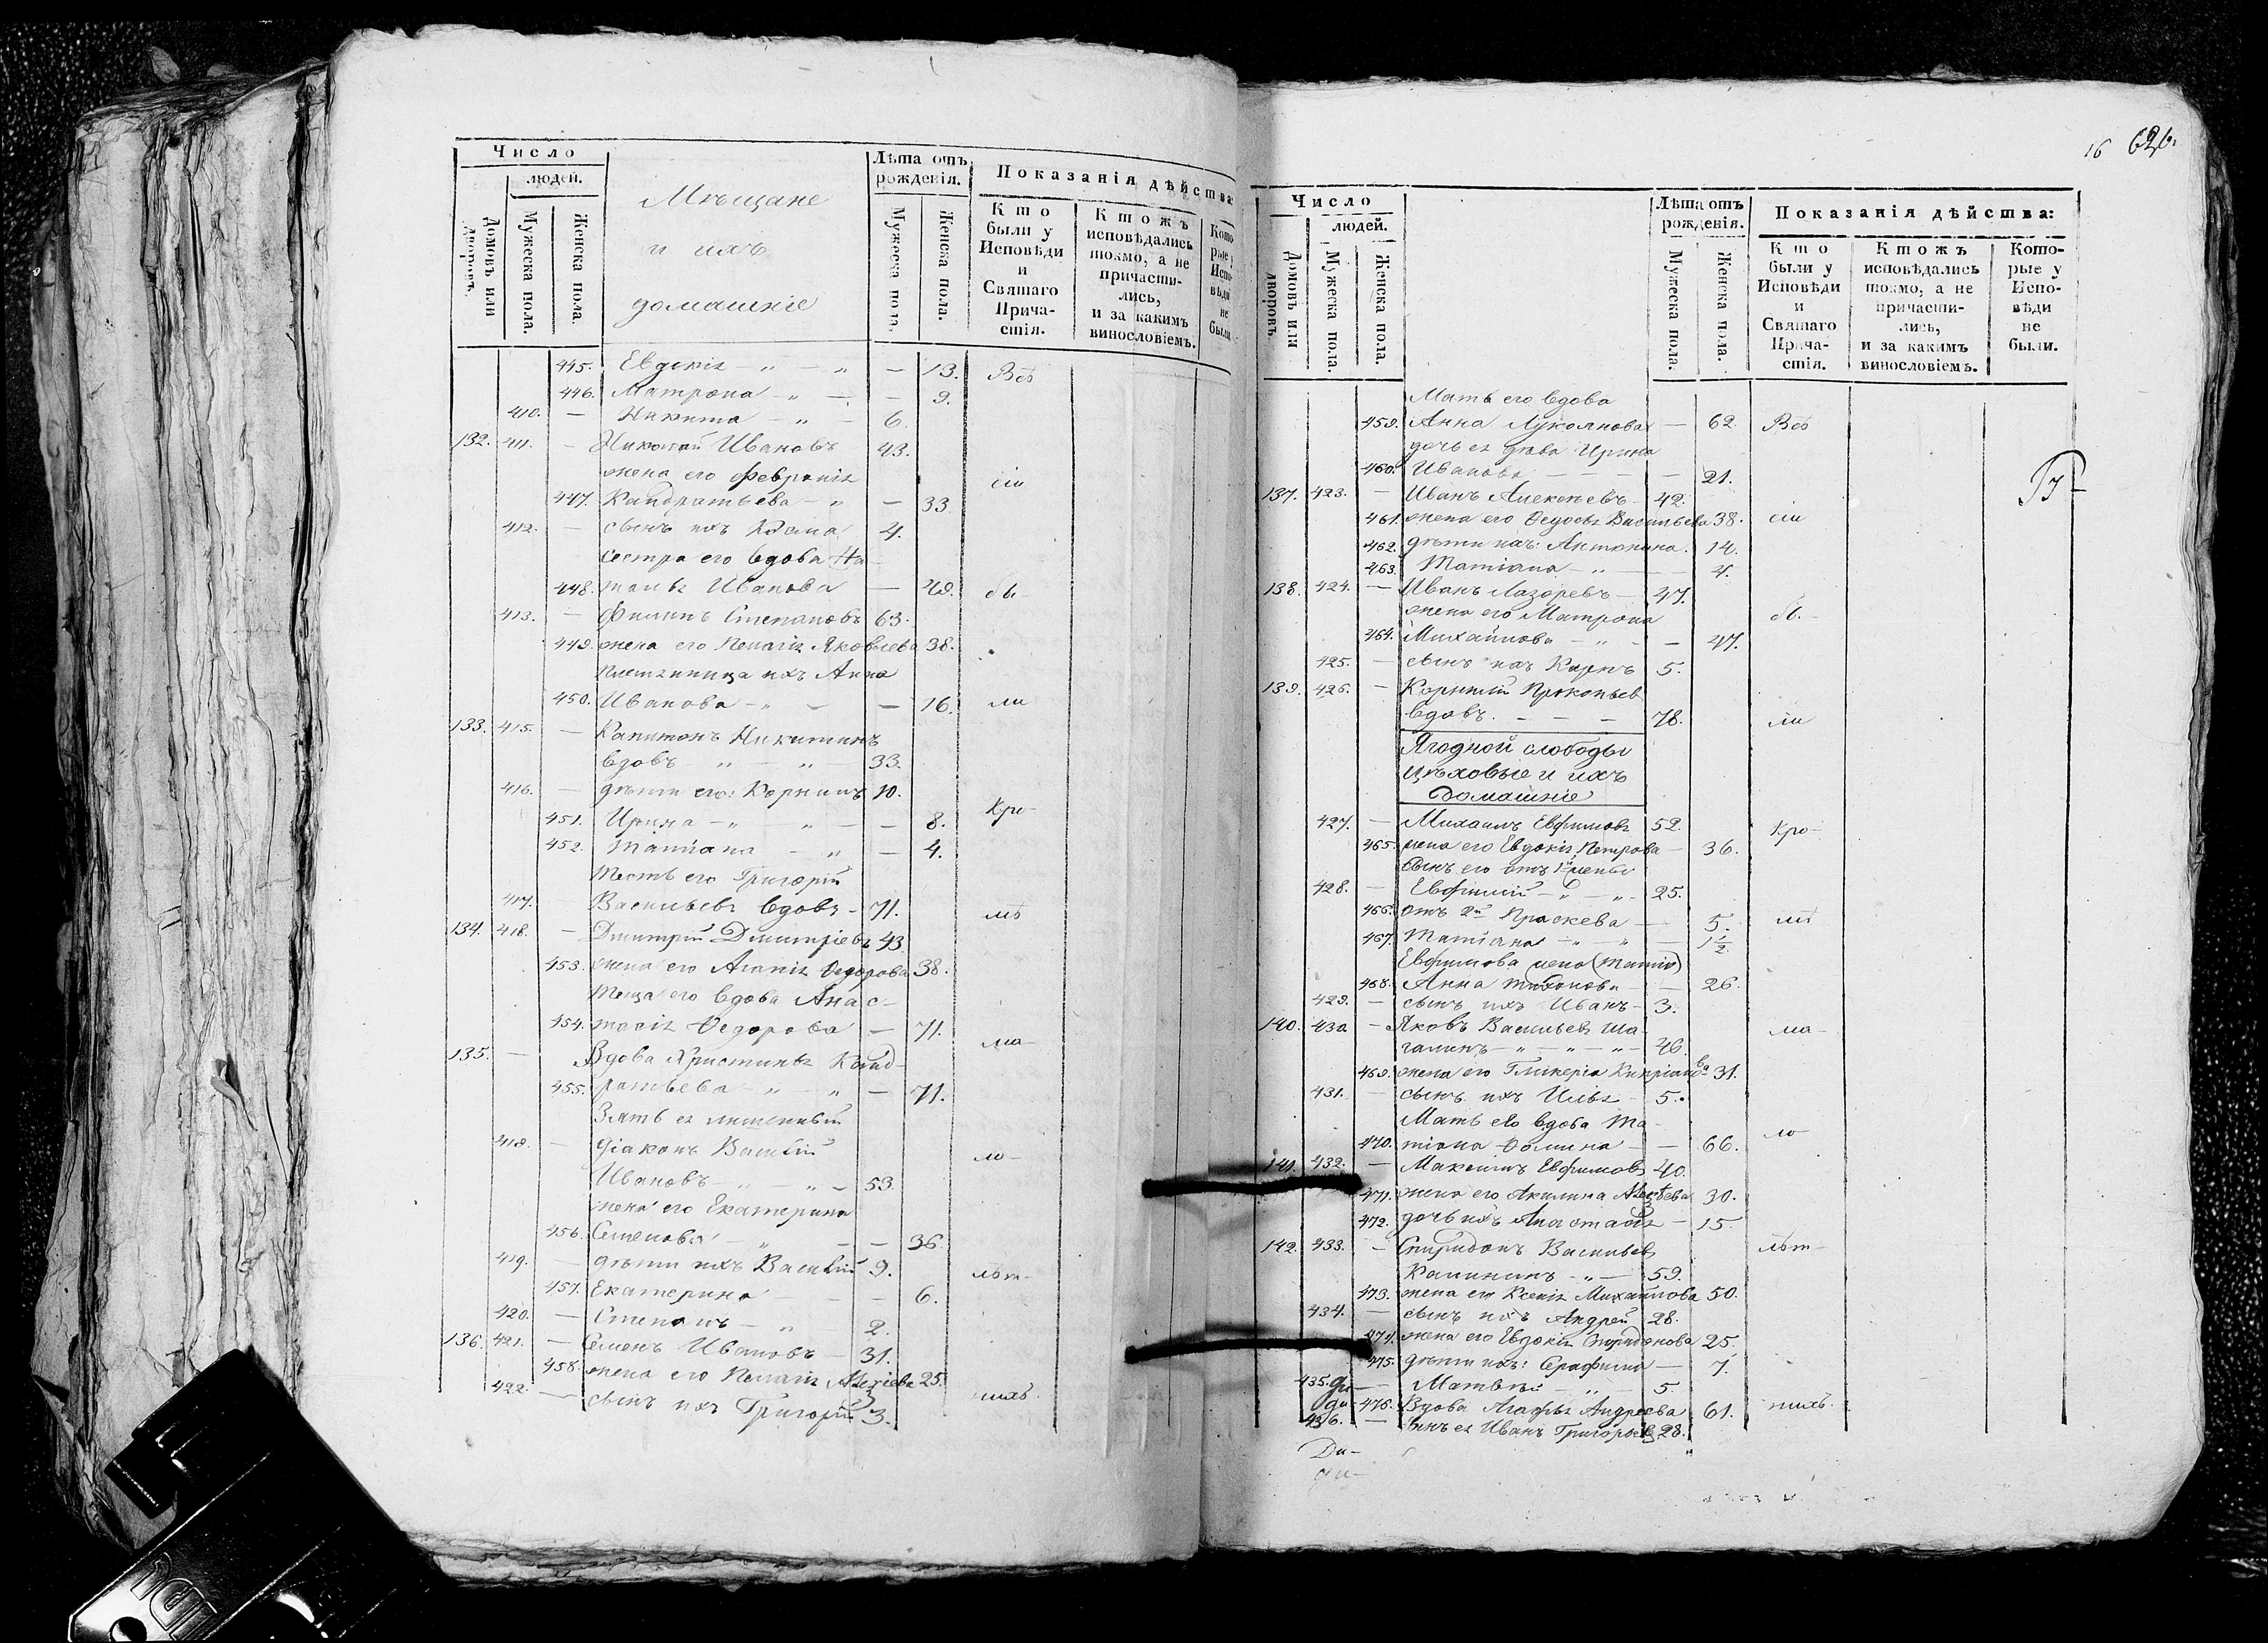 Число
людей.
Домовъ или дворовъ.
Мужеска пола.
Женска пола.
Мѣщане
и ихъ
домашніе
Лѣта отъ рожденія.
Мужеска пола.
Женска пола.
Показанія дѣйства:
Кто были у Исповѣди и Святаго Причастія.
Ктожъ исповѣдались токмо, а не причастились, и за какимъ винословіемъ.
Которые у Исповѣди не были.
445. Евдокія — „ — „ — 13. Всѣ
446. Матрона — „ — — 9.
410. — Никита — „ — 6.
132. 411. — Николай Ивановъ 43.
жена его Феврониія сіи
447. Кандратьева — „ — 33
412. — сынъ ихъ Козма 4.
Сестра его вдова На-
448. талья Иванова — 49. бы-
413. — Филипъ Степановъ 63.
449. жена его Пелагія Яковлева 38.
племянница ихъ Анна
450. Иванова — „ — — 16. ли
133. 415. — Капитонъ Никитинъ
вдовъ — „ — „ — 33.
416. — дѣти его: Корнилъ 10.
451. Ирина — „ — „ — — 8. Кро-
452. Татіана — „ — 4.
Тесть его Григорій
417. Васильевъ вдовъ — 71. мѣ
134. 418. — Дмитрій Дмитріевъ 43
453. жена его Агапія Ѳедорова 38.
Теща его вдова Анас-
454. тасія Ѳедорова — 71. ма-
135. — Вдова Христинья Конд-
455. ратьева — „ — „ — 71.
Зять ея
418. — діаконъ Василій ло-
Ивановъ — „ — „ — 53.
жена его Екатерина
456. Семенова — „ — — 36.
419. — дѣти ихъ Василій 9. лѣт-
457. Екатерина — — — 6.
420. — Степанъ — „ 2.
136. 421. — Семенъ Ивановъ — 31.
458. жена его Пелагія 25.
422. — сынъ ихъ Григорій 3. нихъ.
16 626.
Число
людей.
Домовъ или дворовъ.
Мужеска пола.
Женска пола.
Лѣта отъ рожденія.
Мужеска пола.
Женска пола.
Показанія дѣйства:
Кто были у Исповѣди и Святаго Причастія.
Ктожъ исповѣдались токмо, а не причастились, и за какимъ винословіемъ.
Которые у Исповѣди не были.
Мать его вдова
459. Анна Лукоянова — 62. Всѣ
дочь ея дѣва Ирина
460. Иванова — — — — 21.
137. 423. — Иванъ Алексѣевъ — 42.
461. жена его Ѳедосья Васильева 38. сіи
462. дѣти ихъ: Антонина. 14.
463. Татіана — „ — — 4.
138. 424. — Иванъ Лазоревъ — 47.
жена его Матрона бы-
464. Михайлова — „ — — 47.
425. — сынъ ихъ Карпъ 5.
139. 426. — Корнилій Прокопьев
вдовъ. — — — 78. ли
Ягодной слободы
цѣховые и ихъ
домашніе
427. — Михаилъ Евфимовъ 52. Кро-
465. жена его Евдокія Петрова — 36.
сынъ его отъ 1й жены
428. — Евфимій — „ — „ — 25.
466. отъ 2й Праскева — 5. мѣ
467. Татіана — „ — „ — 1 1/2.
Евфимова жена
468. Анна — — 26.
429. — сынъ ихъ Иванъ — 3.
140. 430. — Яковъ Васильевъ Ша- ма-
галинъ — „ — „ — „ — 46.
469. жена его Гликерія Кипріанова 31.
431. — сынъ ихъ Илья — 5.
Мать его вдова Та-
470. тіана Фомина — — 66. ло-
141. 432. — Максимъ Евфимовъ 40.
471. жена его Акилина 30.
472. дочь ихъ Анастасія — 15.
142. 433. — Спиридонъ Васильевъ лѣт-
Калининъ — „ — 59.
473. жена его Ксенія Михайлова 50.
434. — сынъ ихъ Андрей 28.
474. жена его Евдокія Спиридонова 25.
475. дѣти ихъ: Серафима — 7.
435. — Матвѣй — „ — 5.
476. Вдова Агафья Андреева 61. нихъ.
436. — сынъ ея Иванъ Григорьевъ 28.